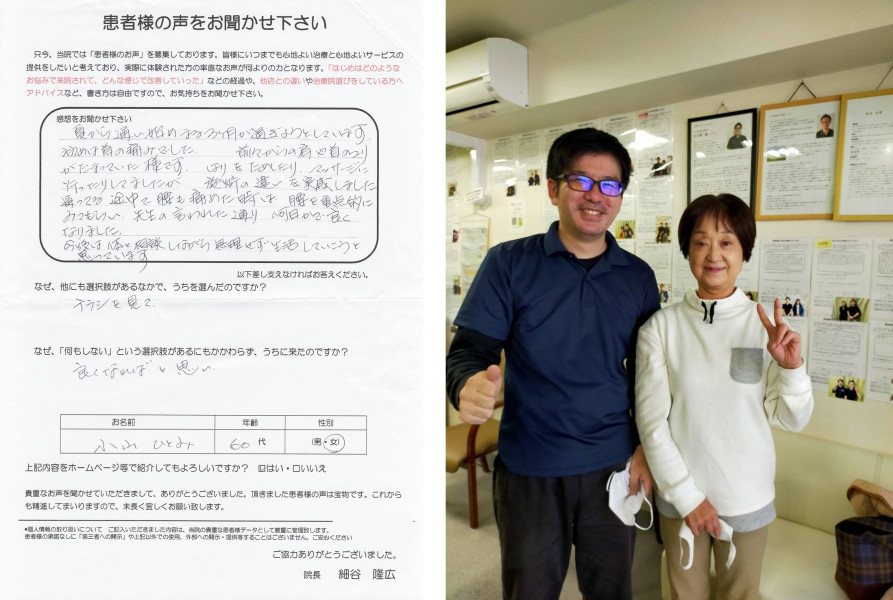 患者様の声をお聞かせ下さい
只今、当院では「患者様のお声」を募集しております。皆様にいつまでも心地よい治療と心地よいサービスの
提供をしたいと考えており、実際に体験された方の率直なお声が何よりの力となります。「はじめはどのような
お悩みで来院されて、どんな感じで改善していった」などの経過や、他店との違いや治療院選びをしている方へ
アドバイスなど、書き方は自由ですので、お気持ちをお聞かせ下さい。
感想をお聞かせ下さい
夏から通い始め 3ヶ月が過ぎようとしています
初めは首の痛みでした。 前々からの肩や首のコリ
がたまっていた様です。 はりをためしたり、マッサージに
行ったりしてましたが 施術の違いを実感しました
通ってる途中で腰も痛めた時は 腰を重点的に
みてもらい、先生の言われた通り 何日かで良く
なりました。
今後は体と相談しながら無理せず生活していこうと
思っています
以下差し支えなければお答えください。
なぜ、他にも選択肢があるなかで、うちを選んだのですか?
チラシを見て
なぜ、「何もしない」という選択肢があるにもかかわらず、うちに来たのですか?
良くなればと思い
お名前 年齢 性別
小山 ひとみ 60代 (男・女)
上記内容をホームページ等で紹介してもよろしいですか? ☑はい・□いいえ
貴重なお声を聞かせていただきまして、ありがとうございました。頂きました患者様の声は宝物です。これから
も精進してまいりますので、末長く宜しくお願い致します。
●個人情報の取り扱いについて ご記入いただきました内容は、当院の貴重な患者様データとして厳重に管理致します。
患者様の承諾なしに「第三者への開示」や上記以外での使用、外部への開示・提供等することはございません。ご安心ください
ご協力ありがとうございました。
院長 細谷 隆広